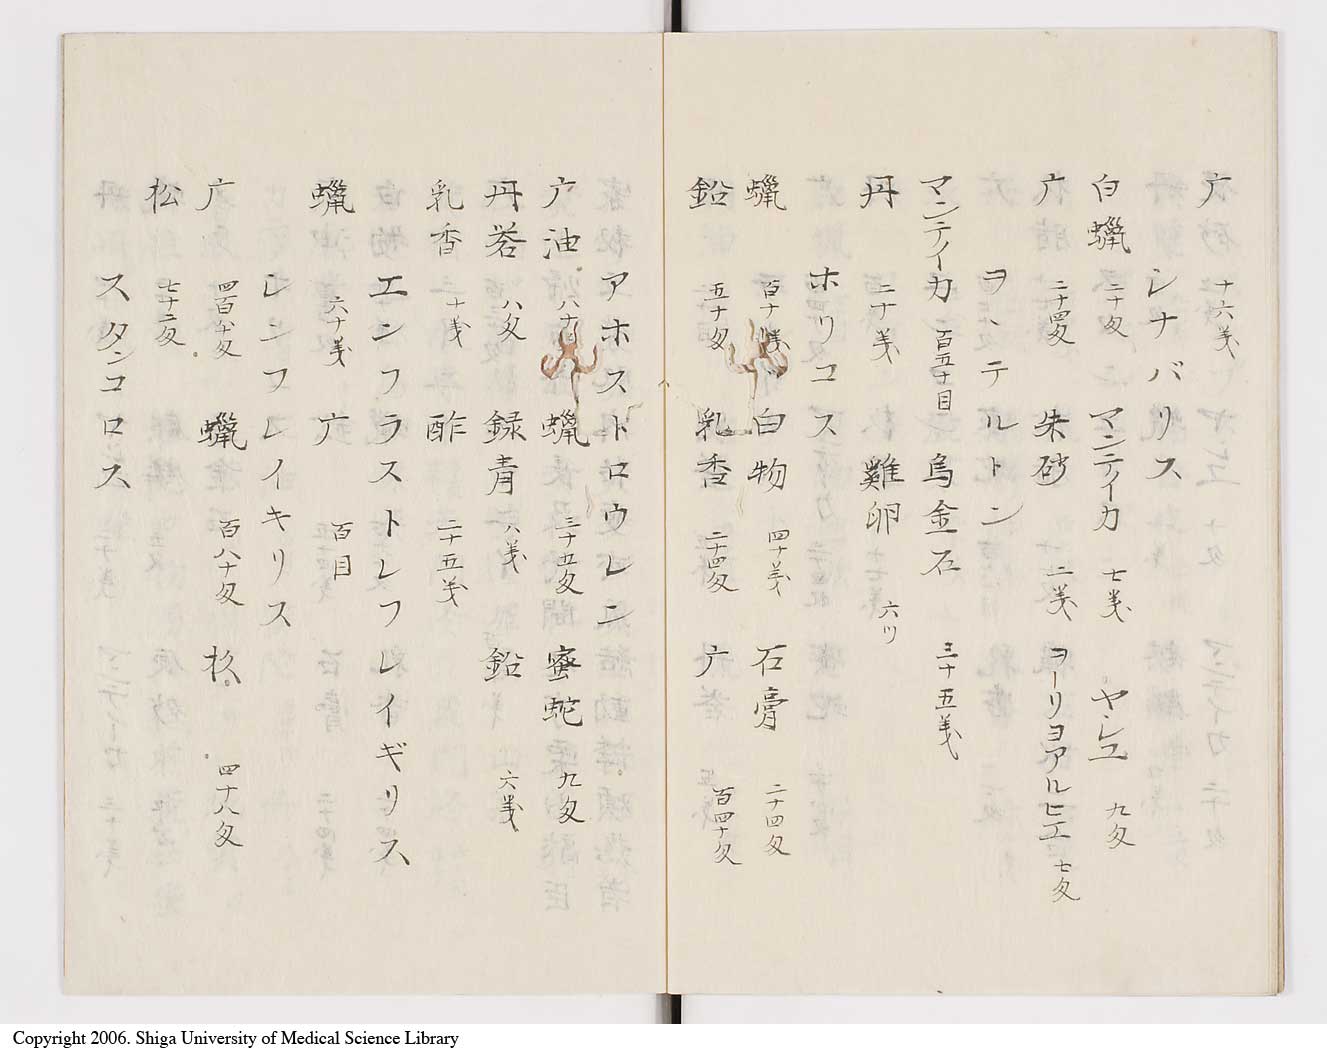 广 十六戔
シナバリス
白蠟 二十匁 マンテイカ 七戔 ヤシユ 九匁
广 二十四匁 朱砂 二戔 ヲーリヨアルヒエ 七匁
ヲヽテルトン
マンテイカ 二百五十目 烏金石 三十五戔
丹 二十戔 雞卵 六ツ
ホリコス
蠟 百十戔 白物 四十戔 石膏 二十四匁
鉛 五十匁 乳香 二十四匁 广 百四十匁
アホストロウレニ
广油 八十 蠟 三十五匁 蜜蛇 九匁
丹 八匁 録青 八戔 鉛 六戔
乳香 十戔 酢 二十五戔
エンフラストレフレイギリス
蠟 六十戔 广 百目
レンフレイキリス
广 四百八十匁 蠟 百八十匁 松 四十八匁
松 七十二匁
スタンコロス
Copyright 2006. Shiga University of Medical Science Library